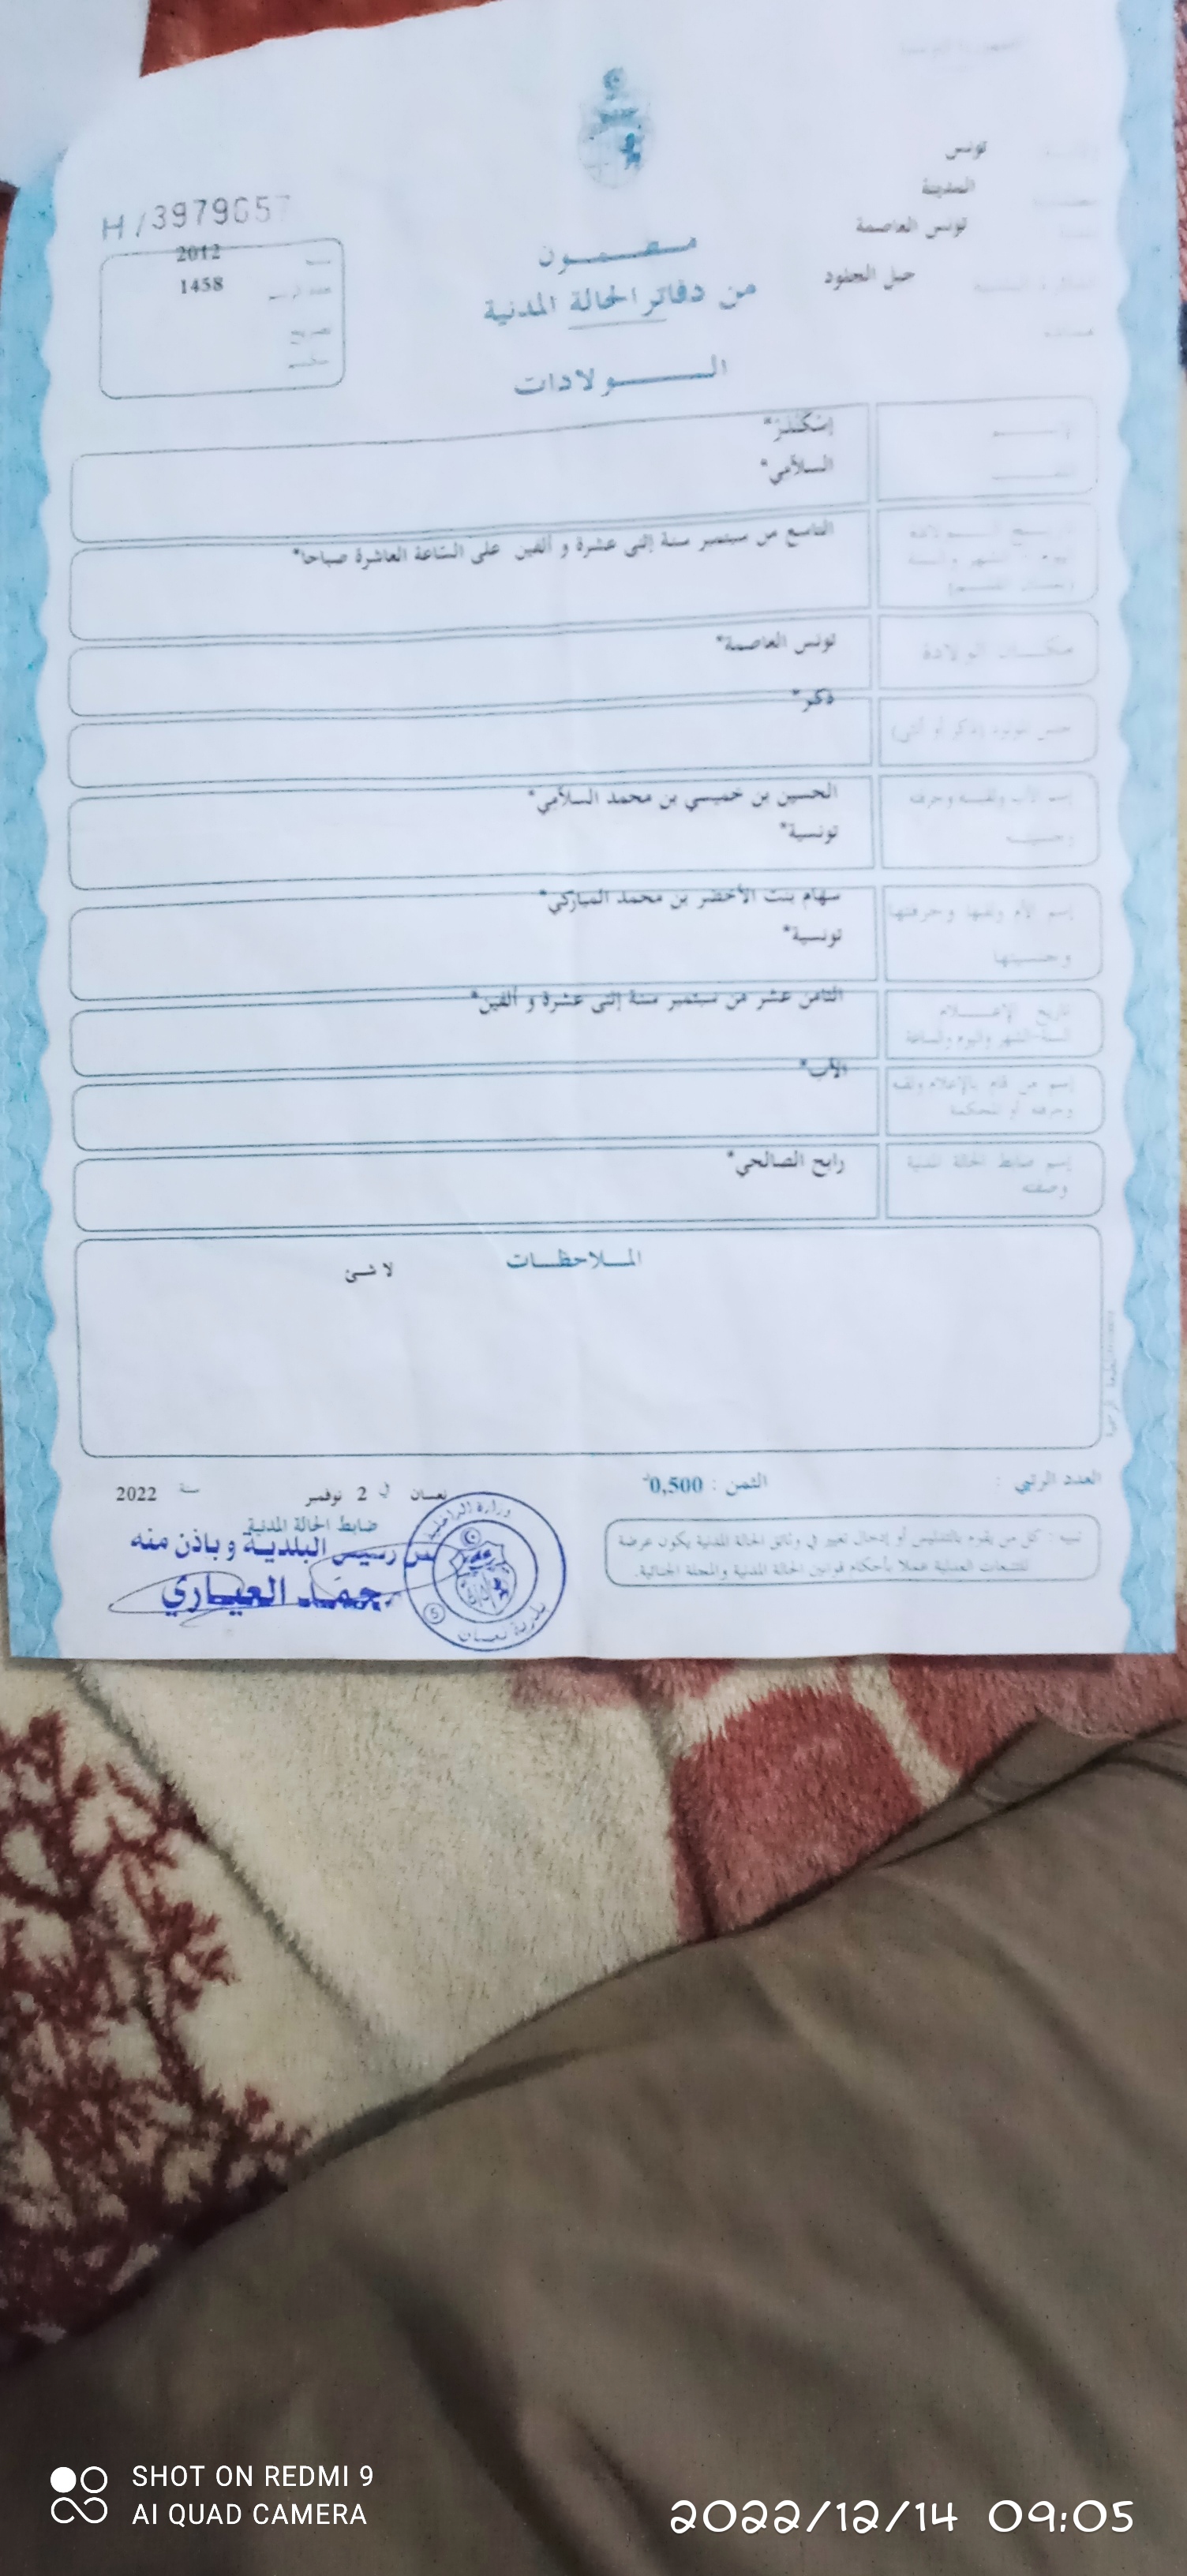 تونس
المدينة
تونس العاصمة
جبل الجلود
H/3979657
سنة 2012
عدد الرسم 1458
مضمون
من دفاتر الحالة المدنية
الولادات
إسكندر*
السلامي*
تاريخ الولادة
التاسع من سبتمبر سنة إثنى عشرة و ألفين على الساعة العاشرة صباحا*
مكان الولادة
تونس العاصمة*
جنس المولود (ذكر أو أنثى)
ذكر*
إسم الأب ولقبه وحرفته
الحسين بن خميسي بن محمد السلامي*
تونسية*
إسم الأم ولقبها وحرفتها
وجنسيتها
سهام بنت الأخضر بن محمد المباركي*
تونسية*
تاريخ الإعلام
الثامن عشر من سبتمبر سنة إثنى عشرة و ألفين*
إسم من قام بالإعلام ولقبه
وحرفته أو المحكمة
الأب*
إسم ضابط الحالة المدنية
وصفته
رابح الصالحي*
الملاحظات
لا شئ
العدد الرتبي :
الثمن : 0,500
نعسان في 2 نوفمبر سنة 2022
ضابط الحالة المدنية
رئيس البلدية وباذن منه
العياري
وزارة الداخلية
بلدية نعسان
تنبيه : كل من يقوم بالتدليس أو إدخال تغيير في وثائق الحالة المدنية يكون عرضة
للتتبعات العدلية عملا بأحكام قوانين الحالة المدنية والمجلة الجنائية.
SHOT ON REDMI 9
AI QUAD CAMERA
2022/12/14 09:05